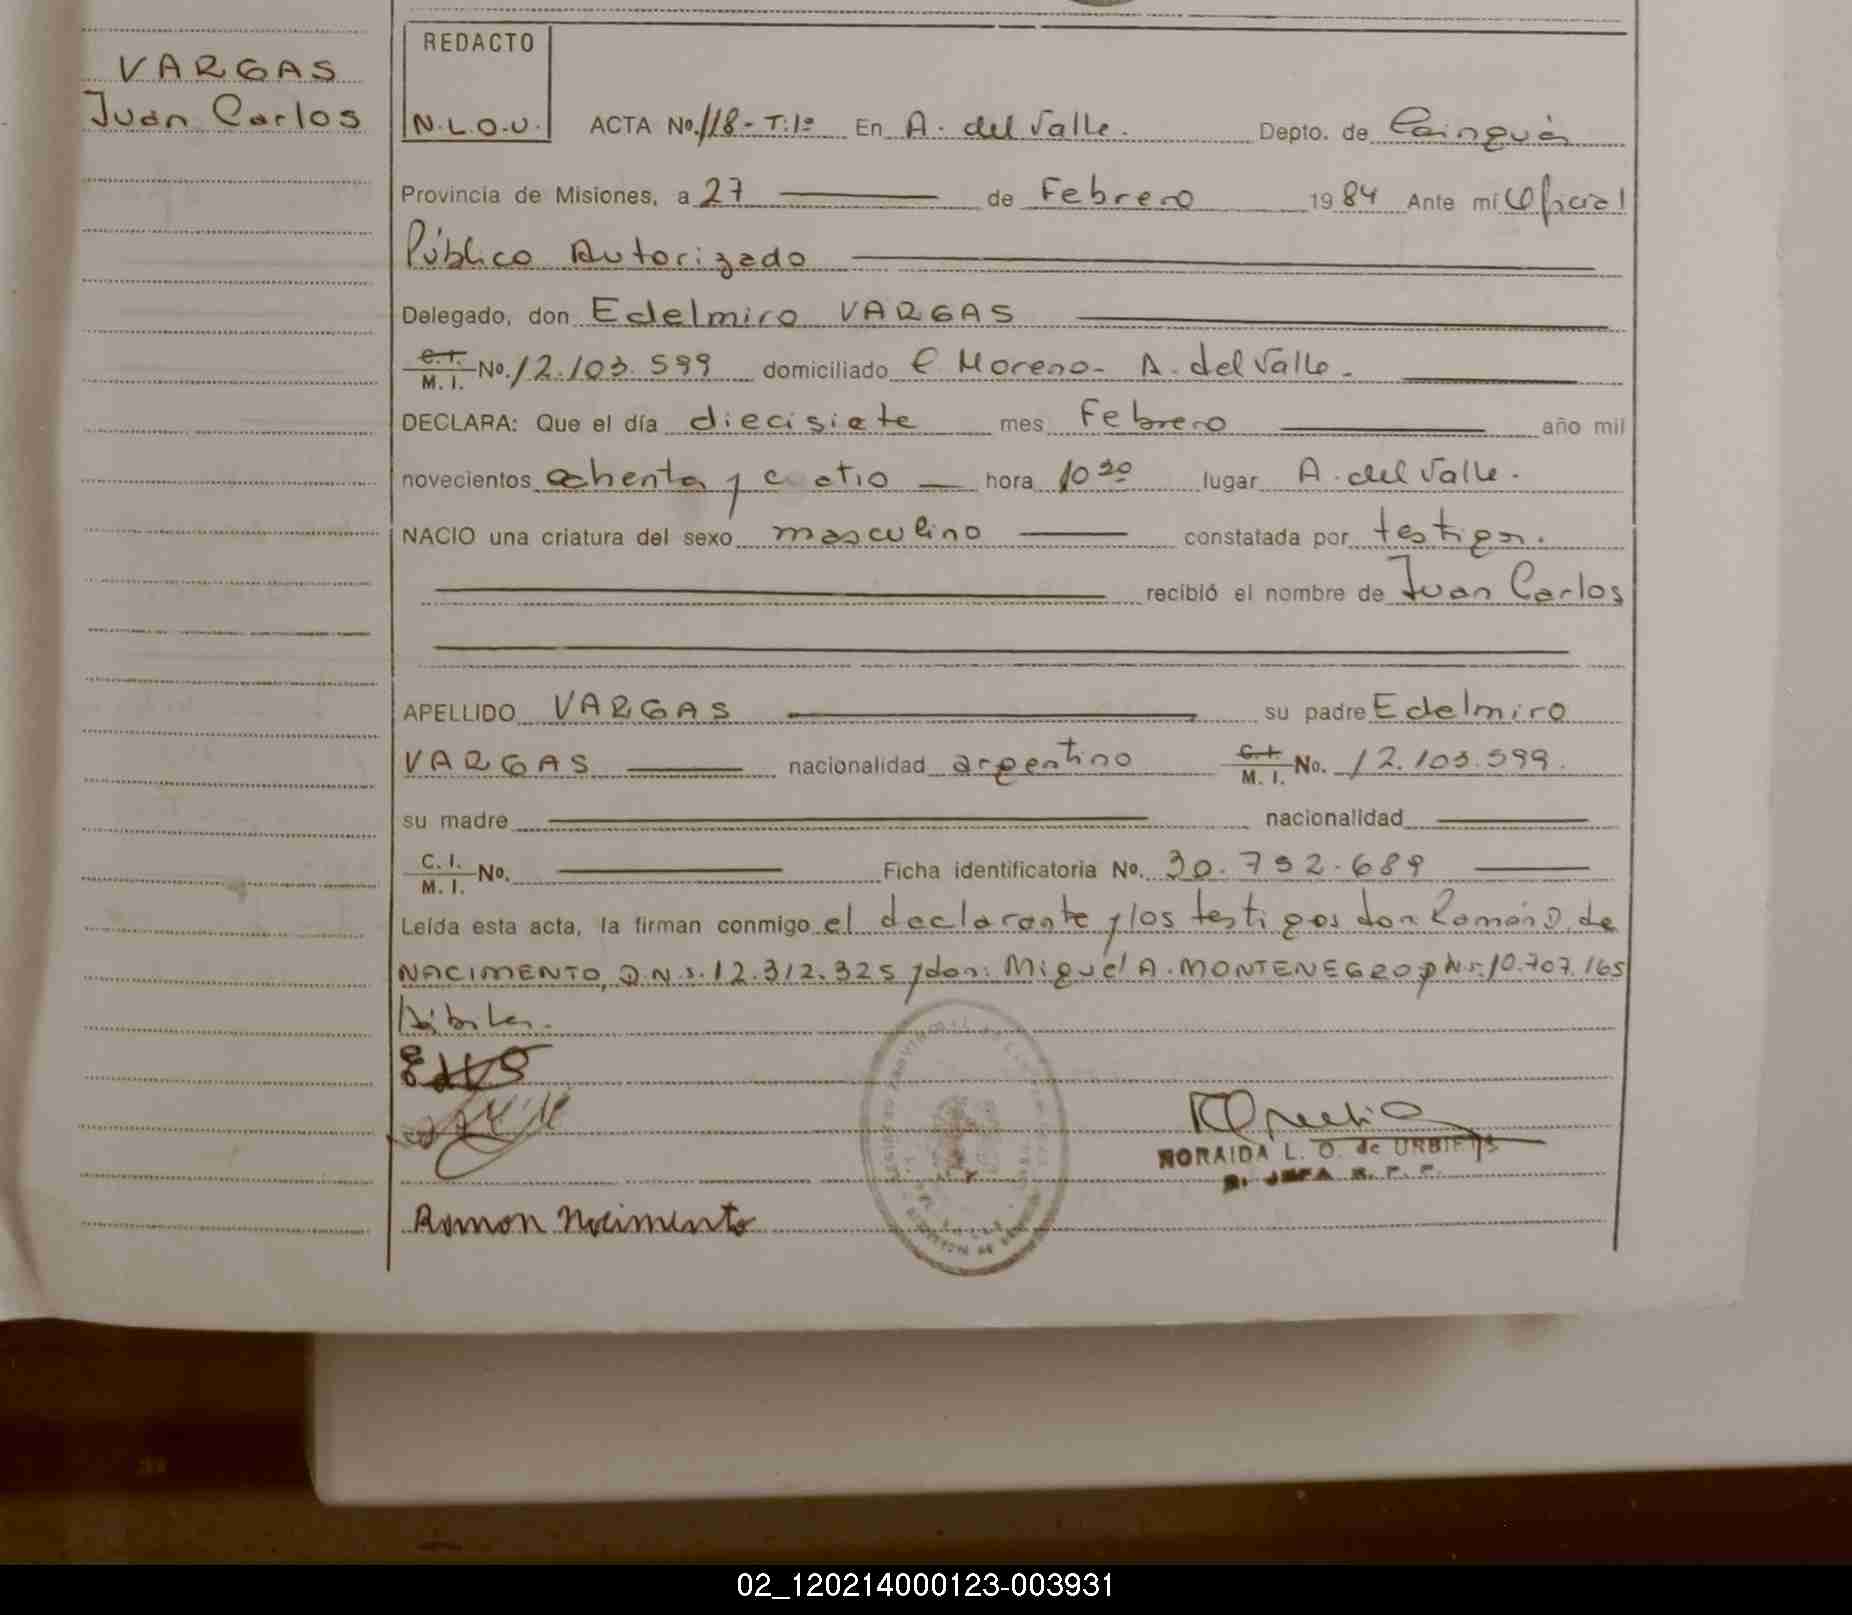 VARGAS
Juan Carlos
REDACTO
N.L.O.U.
ACTA No. 118- T:1º En A. del Valle. Depto. de Cainguás
Provincia de Misiones, a 27 de Febrero 1984 Ante mí Oficial
Público Autorizado
Delegado, don Edelmiro VARGAS
C.I. M. I. No. 12.103.599 domiciliado C Moreno- A. del Valle.
DECLARA: Que el día diecisiete mes Febrero año mil
novecientos ochenta y cuatro hora 10 30 lugar A. del Valle.
NACIO una criatura del sexo masculino constatada por testigos.
recibió el nombre de Juan Carlos
APELLIDO VARGAS su padre Edelmiro
VARGAS nacionalidad argentino C.I. M. I. No. 12.103.599.
su madre nacionalidad
C. I. M. I. No. Ficha identificatoria No. 30.792.689
Leída esta acta, la firman conmigo el declarante y los testigos don Ramón D. de
NACIMENTO, D.N.I. 12.312.325 y don: Miguel A. MONTENEGRO D.N.I. 10.707.165
Hábiles.
Ramon Nacimento
NORAIDA L. O. de URBIETA
02_120214000123-003931